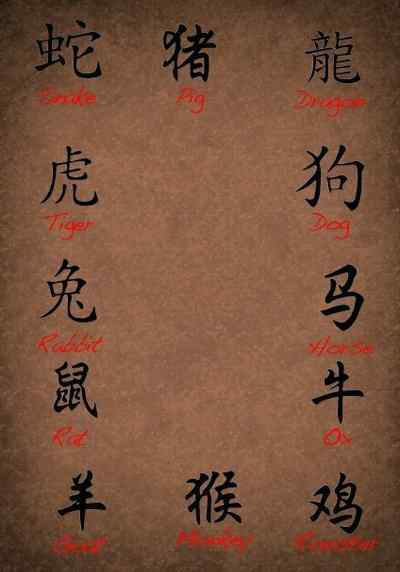 蛇 猪 龍
Snake Pig Dragon
虎 狗
Tiger Dog
兔 马
Rabbit Horse
鼠 牛
Rat Ox
羊 猴 鸡
Goat Monkey Rooster